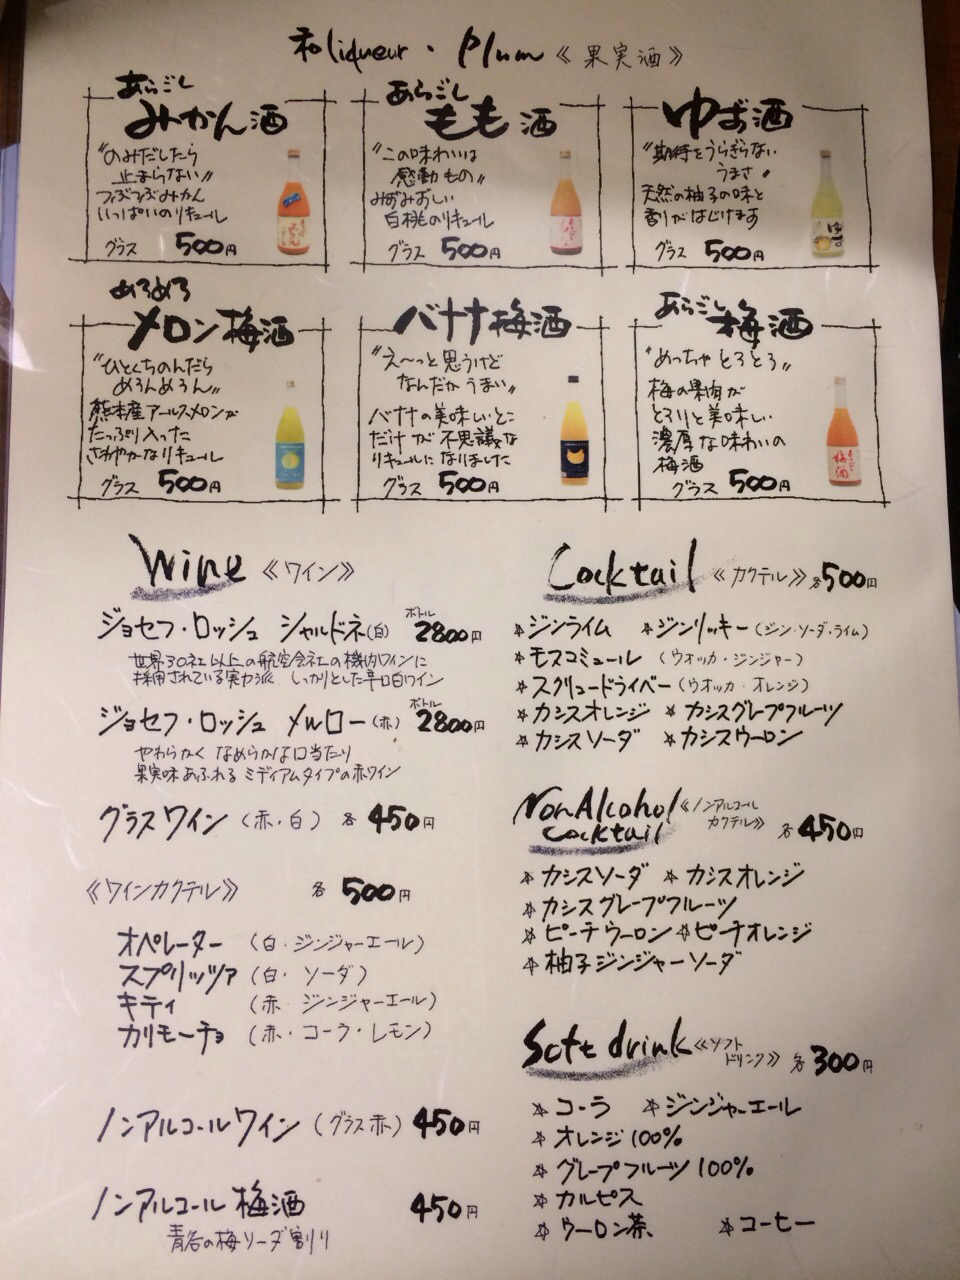 和liqueur・Plum《果実酒》
あらごし
みかん酒
"のみだしたら
止まらない"
つぶつぶみかん
いっぱいのリキュール
グラス 500円
あらごし
もも酒
"この味わいは
感動もの"
みずみずしい
白桃のリキュール
グラス 500円
ゆず酒
"期待をうらぎらない
うまさ"
天然の柚子の味と
香りがはじけます
グラス 500円
めろめろ
メロン梅酒
"ひとくちのんだら
めろんめろん"
熊本産アールスメロンが
たっぷり入った
さわやかなリキュール
グラス 500円
バナナ梅酒
"え〜っと思うけど
なんだかうまい"
バナナの美味しいとこ
だけが不思議な
リキュールになりました
グラス 500円
あらごし
梅酒
"めっちゃとろとろ"
梅の果肉が
とろりと美味しい
濃厚な味わいの
梅酒
グラス 500円
Wine《ワイン》
ジョセフ・ロッシュ シャルドネ(白) ボトル 2800円
世界30社以上の航空会社の機内ワインに
採用されている実力派 しっかりとした辛口白ワイン
ジョセフ・ロッシュ メルロー(赤) ボトル 2800円
やわらかく なめらかな口当たり
果実味あふれる ミディアムタイプの赤ワイン
グラスワイン (赤・白) 各 450円
《ワインカクテル》 各 500円
オペレーター (白・ジンジャーエール)
スプリッツァ (白・ソーダ)
キティ (赤・ジンジャーエール)
カリモーチョ (赤・コーラ・レモン)
ノンアルコールワイン (グラス赤) 450円
ノンアルコール梅酒 450円
青谷の梅ソーダ割り
Cocktail《カクテル》各500円
☆ジンライム ☆ジンリッキー (ジン・ソーダ・ライム)
☆モスコミュール (ウオッカ・ジンジャー)
☆スクリュードライバー (ウオッカ・オレンジ)
☆カシスオレンジ ☆カシスグレープフルーツ
☆カシスソーダ ☆カシスウーロン
NonAlcohol《ノンアルコール
cocktail カクテル》 各450円
☆カシスソーダ ☆カシスオレンジ
☆カシスグレープフルーツ
☆ピーチウーロン ☆ピーチオレンジ
☆柚子ジンジャーソーダ
Soft drink《ソフト
ドリンク》 各300円
☆コーラ ☆ジンジャーエール
☆オレンジ100%
☆グレープフルーツ100%
☆カルピス
☆ウーロン茶 ☆コーヒー